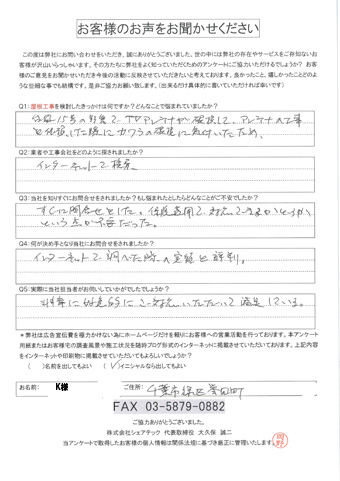 お客様のお声をお聞かせください
この度は弊社にお問い合わせをいただき、誠にありがとうございました。世の中には弊社の存在やサービスをご存知ないお
客様が沢山いらっしゃいます。その方たちに弊社をよく知っていただくためのアンケートにご協力いただけるでしょうか? お客
様のご意見をお聞かせいただき今後の活動に反映させていただきたいと考えております。良かったこと、嬉しかったことどのよ
うな些細な事でも結構です。是非ご協力お願い致します。(出来るだけ具体的に書いていただければ幸いです)
Q1:屋根工事を検討したきっかけは何ですか?どんなことで悩まれていましたか?
台風15号の影響でTVアンテナが破損して、アンテナの工事
を依頼した際にカワラの破損に気付いたため。
Q2:業者や工事会社をどのように探されましたか?
インターネットで検索
Q3:当社を知りすぐにお問合せをされましたか?もし悩まれたとしたらどんなことがご不安でしたか?
すぐに問合せをした。保険適用で対応できるかどうか
という点が不安だった。
Q4:何が決め手となり当社にお問合せをされましたか?
インターネットで調べた時の実績と評判。
Q5:実際に当社担当者がお伺いしていかがでしたでしょうか?
非常に好意的にご対応いただいて満足している。
*弊社は広告宣伝費を極力かけない為にホームページだけを頼りにお客様への営業活動を行っております。本アンケート
用紙またはお客様宅での調査風景や施工状況を随時ブログ形式のインターネットに掲載させていただいております。上記内容
をインターネットや印刷物に掲載させていただいてもよろしいでしょうか?
( )名前を出してもよい (✓)イニシャルなら出してもよい
お名前: K様 ご住所: 千葉市緑区誉田町
FAX 03-5879-0882
ご協力ありがとうございました。
株式会社シェアテック 代表取締役 大久保 誠二
当アンケートで取得したお客様の個人情報は関係法規に基づき厳正に管理いたします。